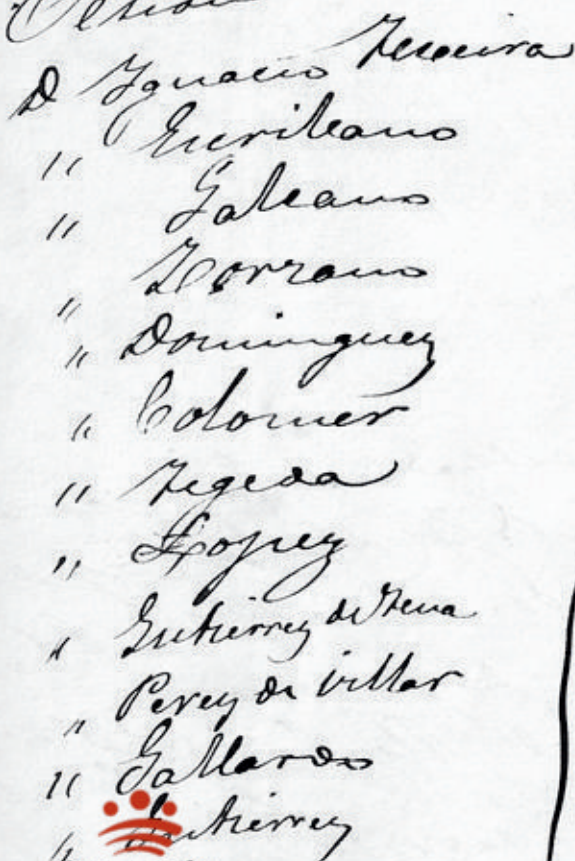 D Ignacio Texeira
" Galeano
" Lorzano
" Dominguez
" Colomer
" Tegeda
" Lopez
" Gutierrez de Tena
" Perez de Villar
" Gallardo
" Gutierrez